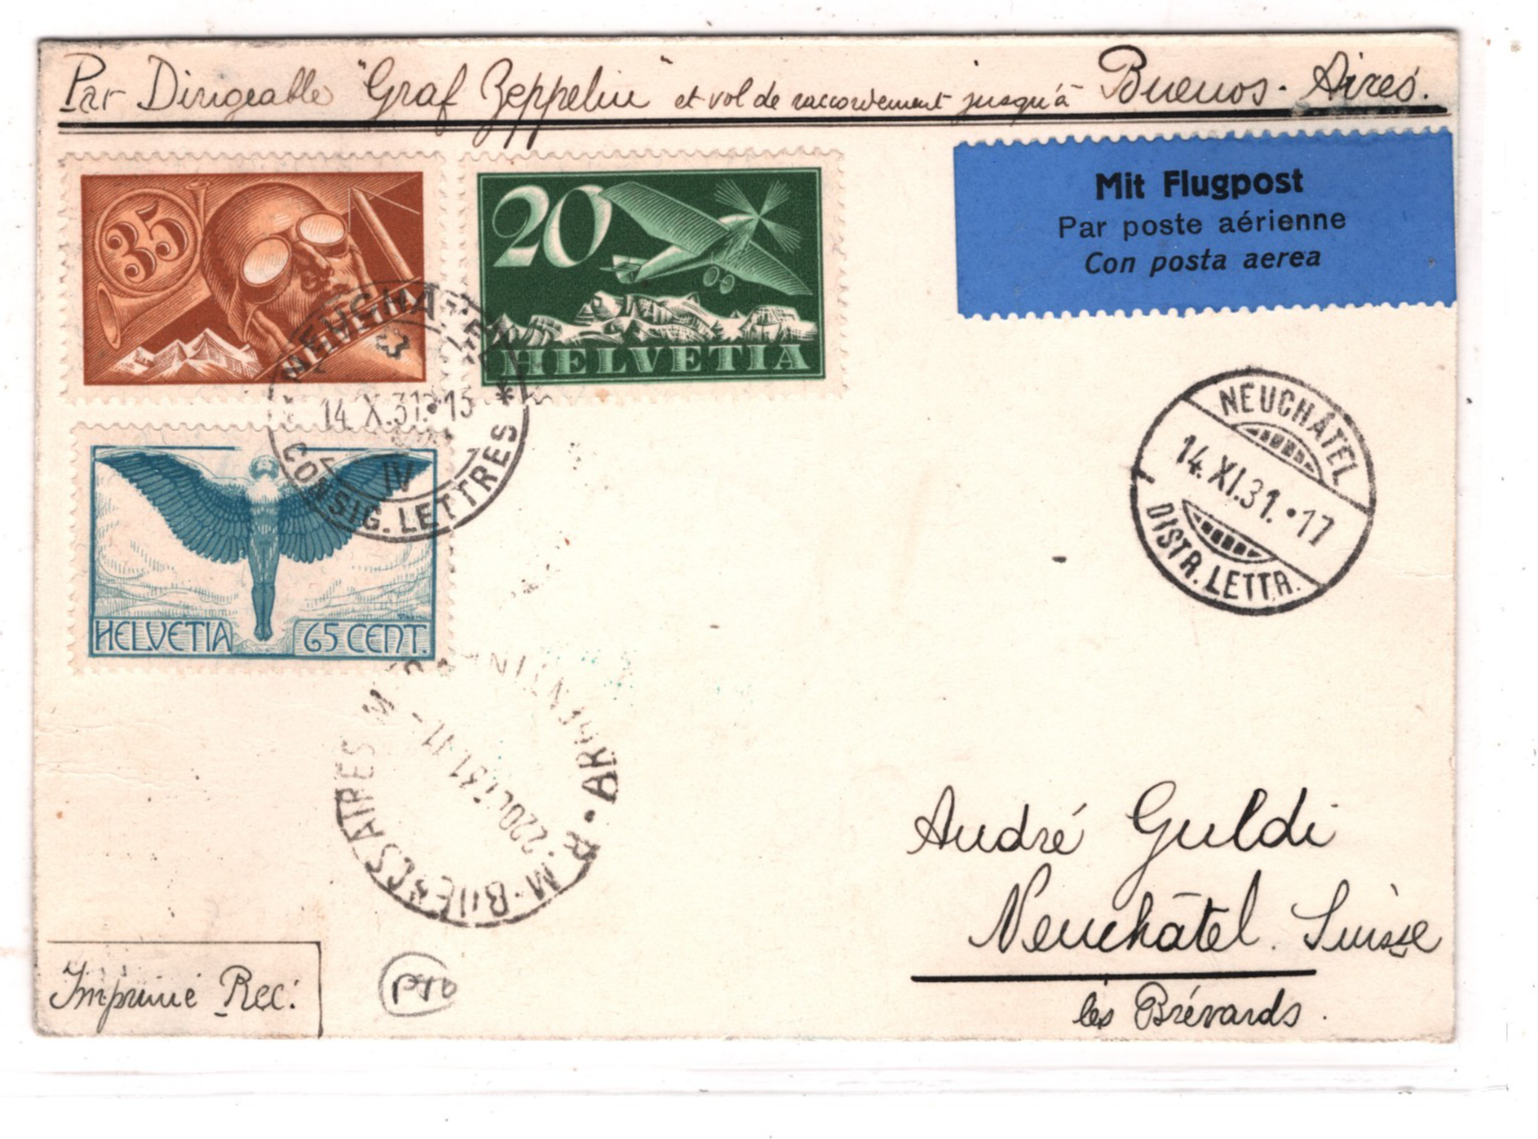 Par Dirigeable "Graf Zeppelin" et vol de raccordement jusqu'à Buenos-Aires.
35
20
HELVETIA
Mit Flugpost
Par poste aérienne
Con posta aerea
NEUCHATEL
14.X.31.15
IV
CONSIG. LETTRES
HELVETIA 65 CENT.
NEUCHÂTEL
14.XI.31.•17
DISTR. LETTR.
BUENOS AIRES
ARGENTINA
22OCT31
André Guldi
Neuchâtel. Suisse
les Brévards.
Imprimé Rec: